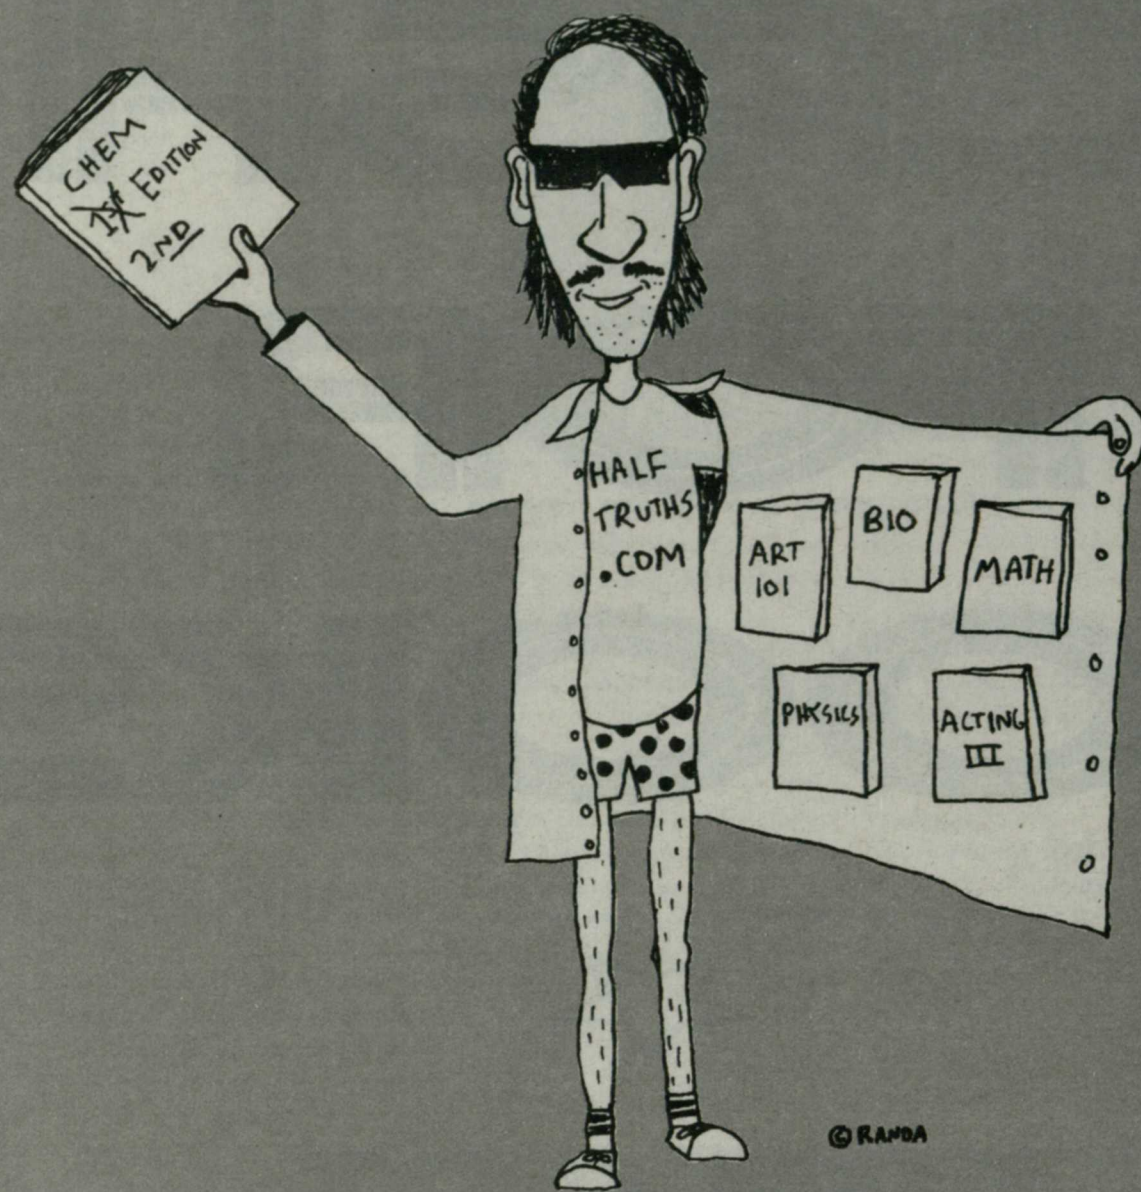 CHEM
1st EDITION
2ND
HALF
TRUTHS
.COM
ART
101
BIO
MATH
PHYSICS
ACTING
III
© RANDA